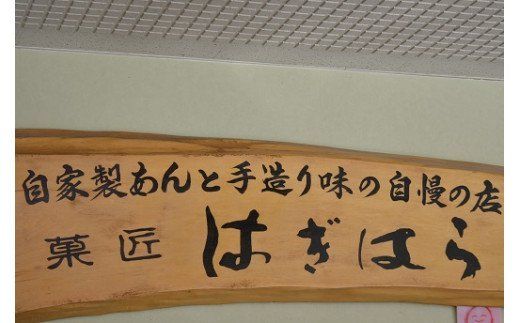 自家製あんと手造り味の自慢の店
菓匠 はぎはら